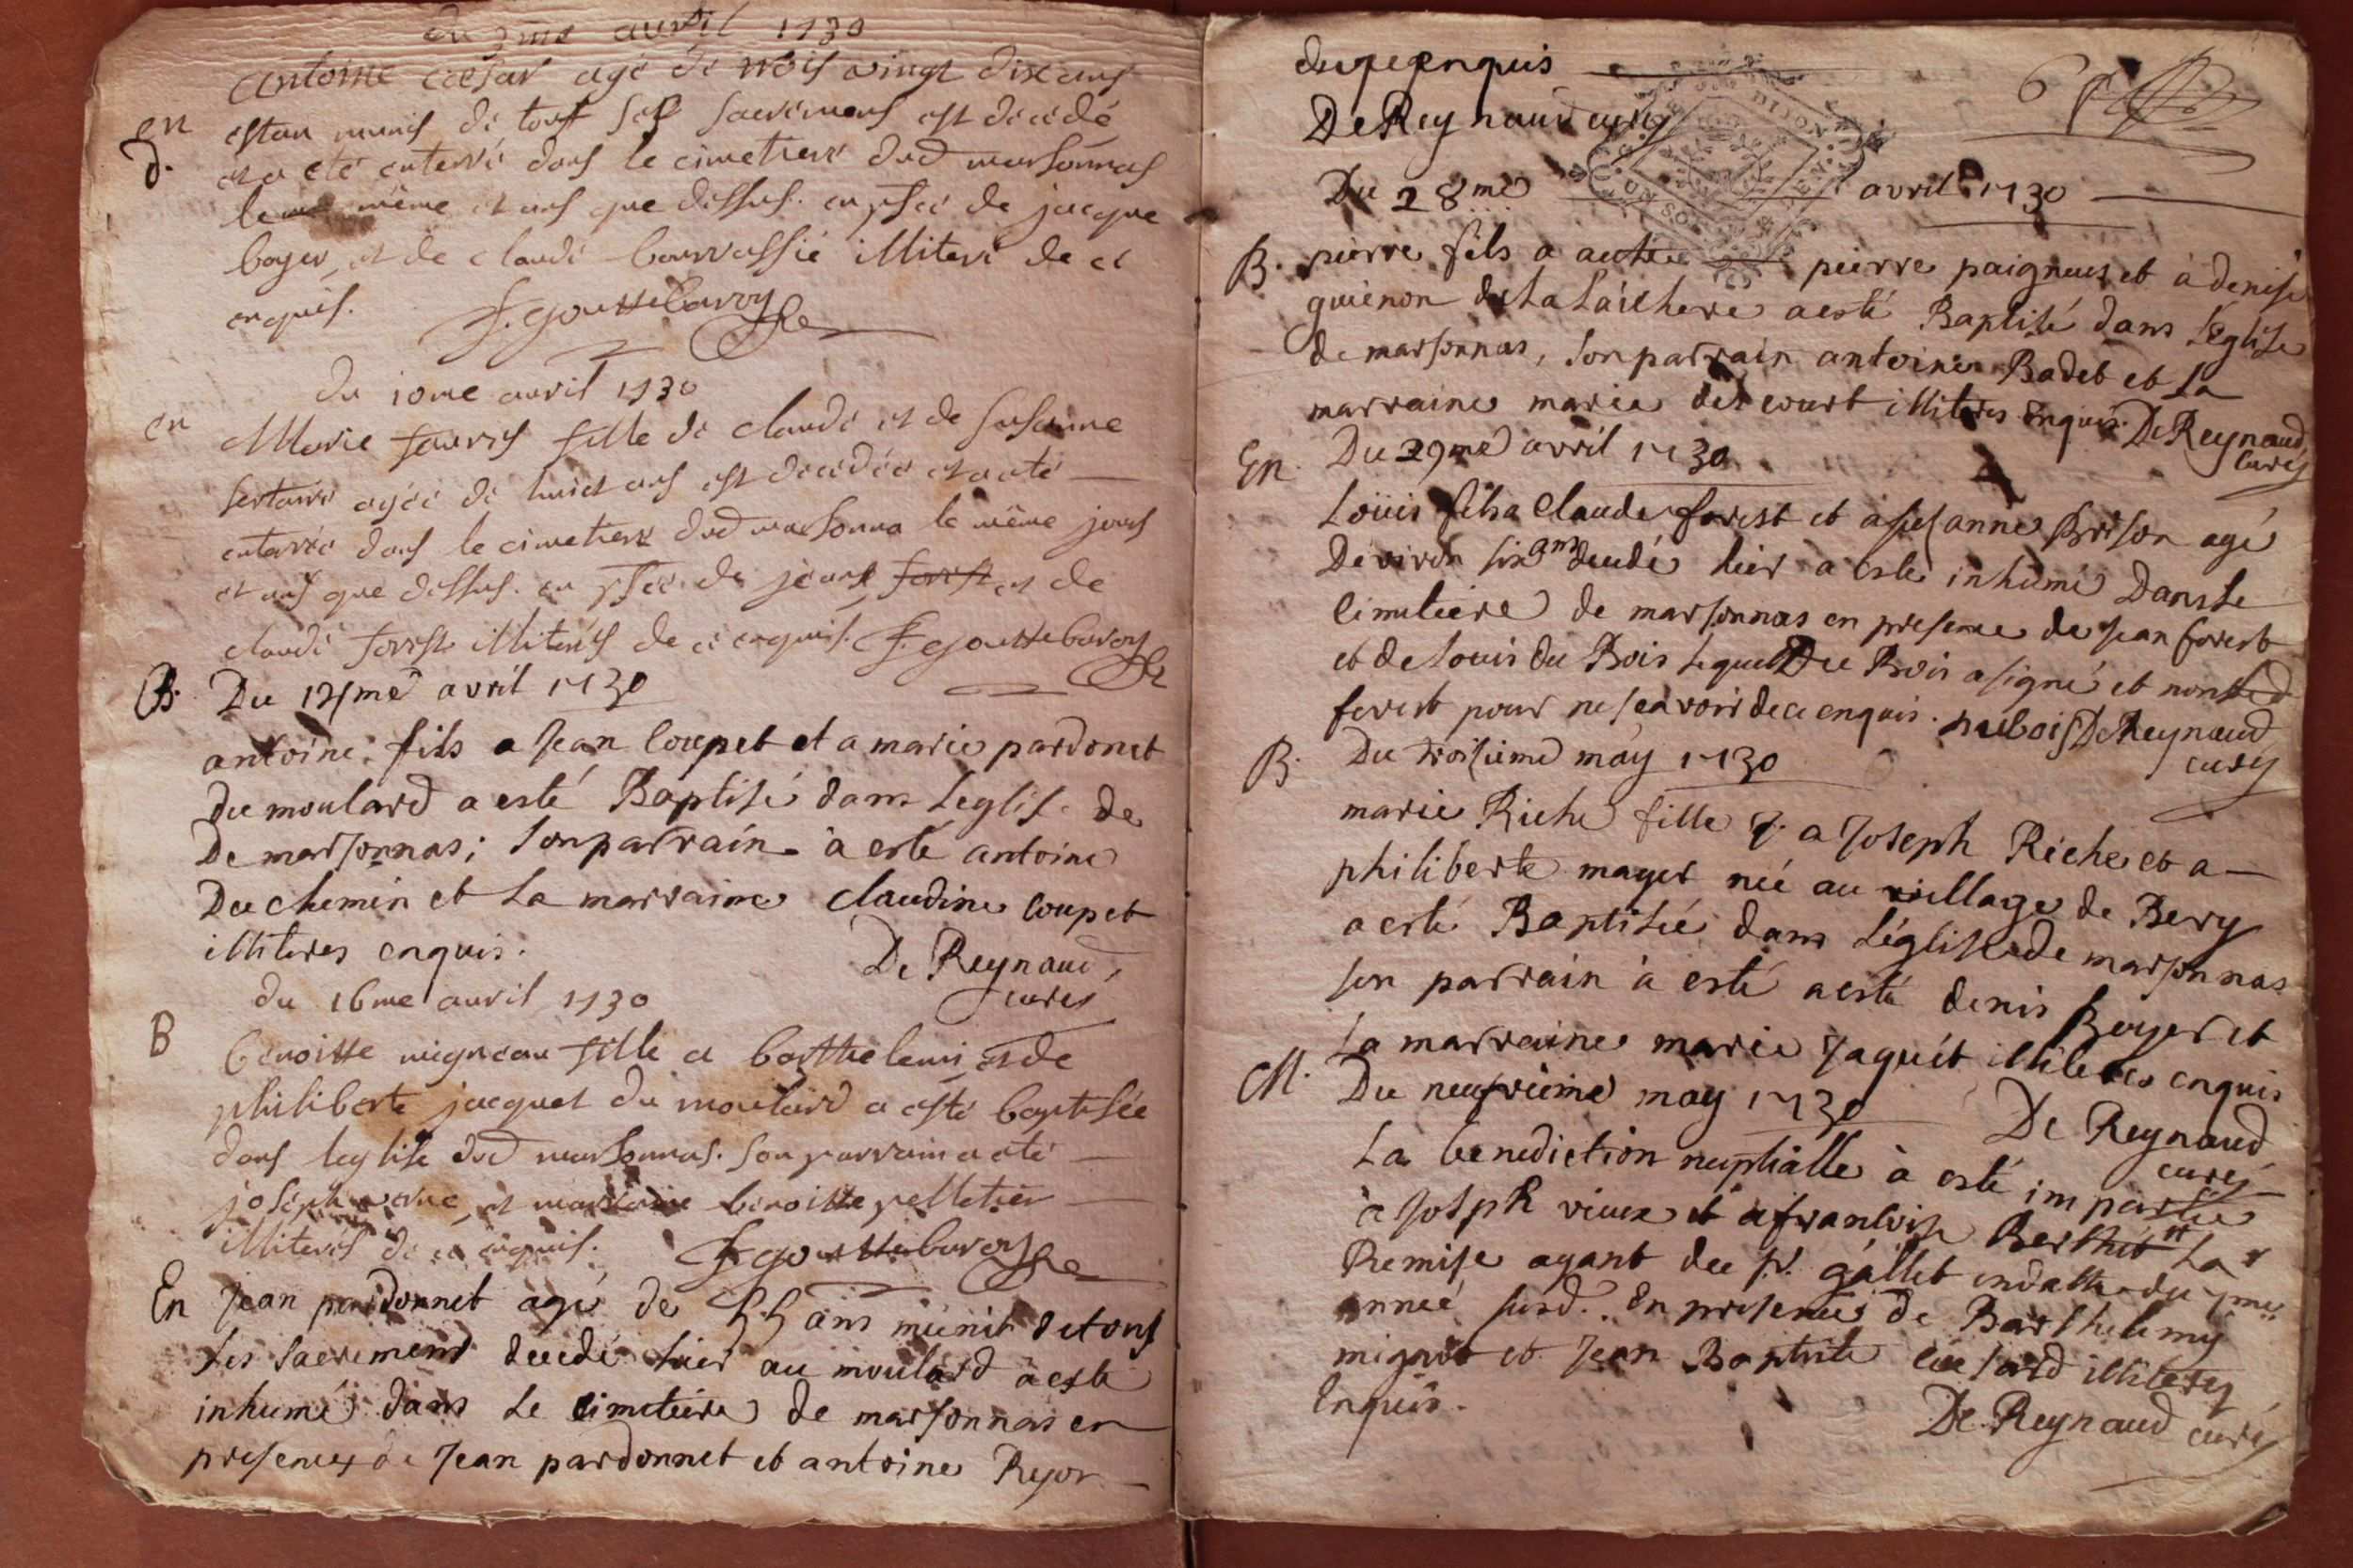 du 3me avril 1730
antoine cesar agé de trois vingt dix ans
en
d.
estan munis de tout ses sacremens est décédé
et a eté enterré dans le cimetiere dud marsonnas
le même et ans que dessus. en psce de jacque
boyer et de claude bourrassié illiteré de ce
enquis. f. gouttebaroy
du 10me avril 1730
en
Marie fourest fille de claude et de susanne
agée de huict ans est decedée et a eté
enterrée dans le cimetiere dud marsonna le même jours
et ans que dessus. en psce de jean forest et de
claude forest illiterés de ce enquis. f. gouttebaroy
B. Du 12me avril 1730
antoine fils a Jean Coupet et a marie pardonet
du moulard a esté Baptisé dans Leglise de
De marsonnas; Son parrain à esté antoine
Du chemin et La marraine Claudine Coupet
illiteres enquis. De Reynaud,
curé
du 16me avril 1730
B
benoitte migneau fille a barthelemi et de
philiberte jacquet du moulard a esté baptisée
dans leglise dud marsonnas. Son parrain a eté
joseph et marraine benoitte pelletier
illiterés de ce enquis. f. gouttebaroy
En Jean pardonnet agé de 55 ans munit de tous
Les Sacremens decedé hier au moulard à esté
inhumé dans Le Cimetiere de marsonnas en
presence de Jean pardonnet et antoine Reyor
enquis
De Reynaud curé
6
DIJON
Du 28me avril 1730
B. pierre fils a pierre paigneus et à denise
guienon de La Laichere a esté Baptisé dans L'église
de marsonnas, Son parrain antoine Badet et La
marraine marie decourt illiteres enquis. De Reynaud
curé
En. Du 29me avril 1730
Loüis fils a Claude forest et à susanne Brison agé
D'eviron six ans decedé hier a esté inhumé Dans Le
Cimetiere de marsonnas en presence de Jean forest
et de Louis du Bois Lequel Du Bois a signé et non Led
forest pour ne scavoir de ce enquis. Dubois De Reynaud
curé
B. Du troisieme may 1730
marie Riche fille a Joseph Riche et a
philiberte mayet née au village de Bery
a esté Baptisée dans L'église de marsonnas
son parrain à esté a esté denis Boyer et
La marraine marie Jaquet illiteres enquis
M. Du neufvieme may 1730 De Reynaud
curé
La benediction nuptialle à esté impartie
à Joseph vieux et a francoise Berthet La
Remise ayant du Sr. gallet en datte du
année susd. En presence de Barthelemy
mignot et Jean Baptiste illiteres
Enquis.
De Reynaud curé